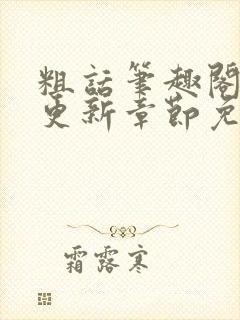 粗話筆趣閣
更新章節免
霜露寒